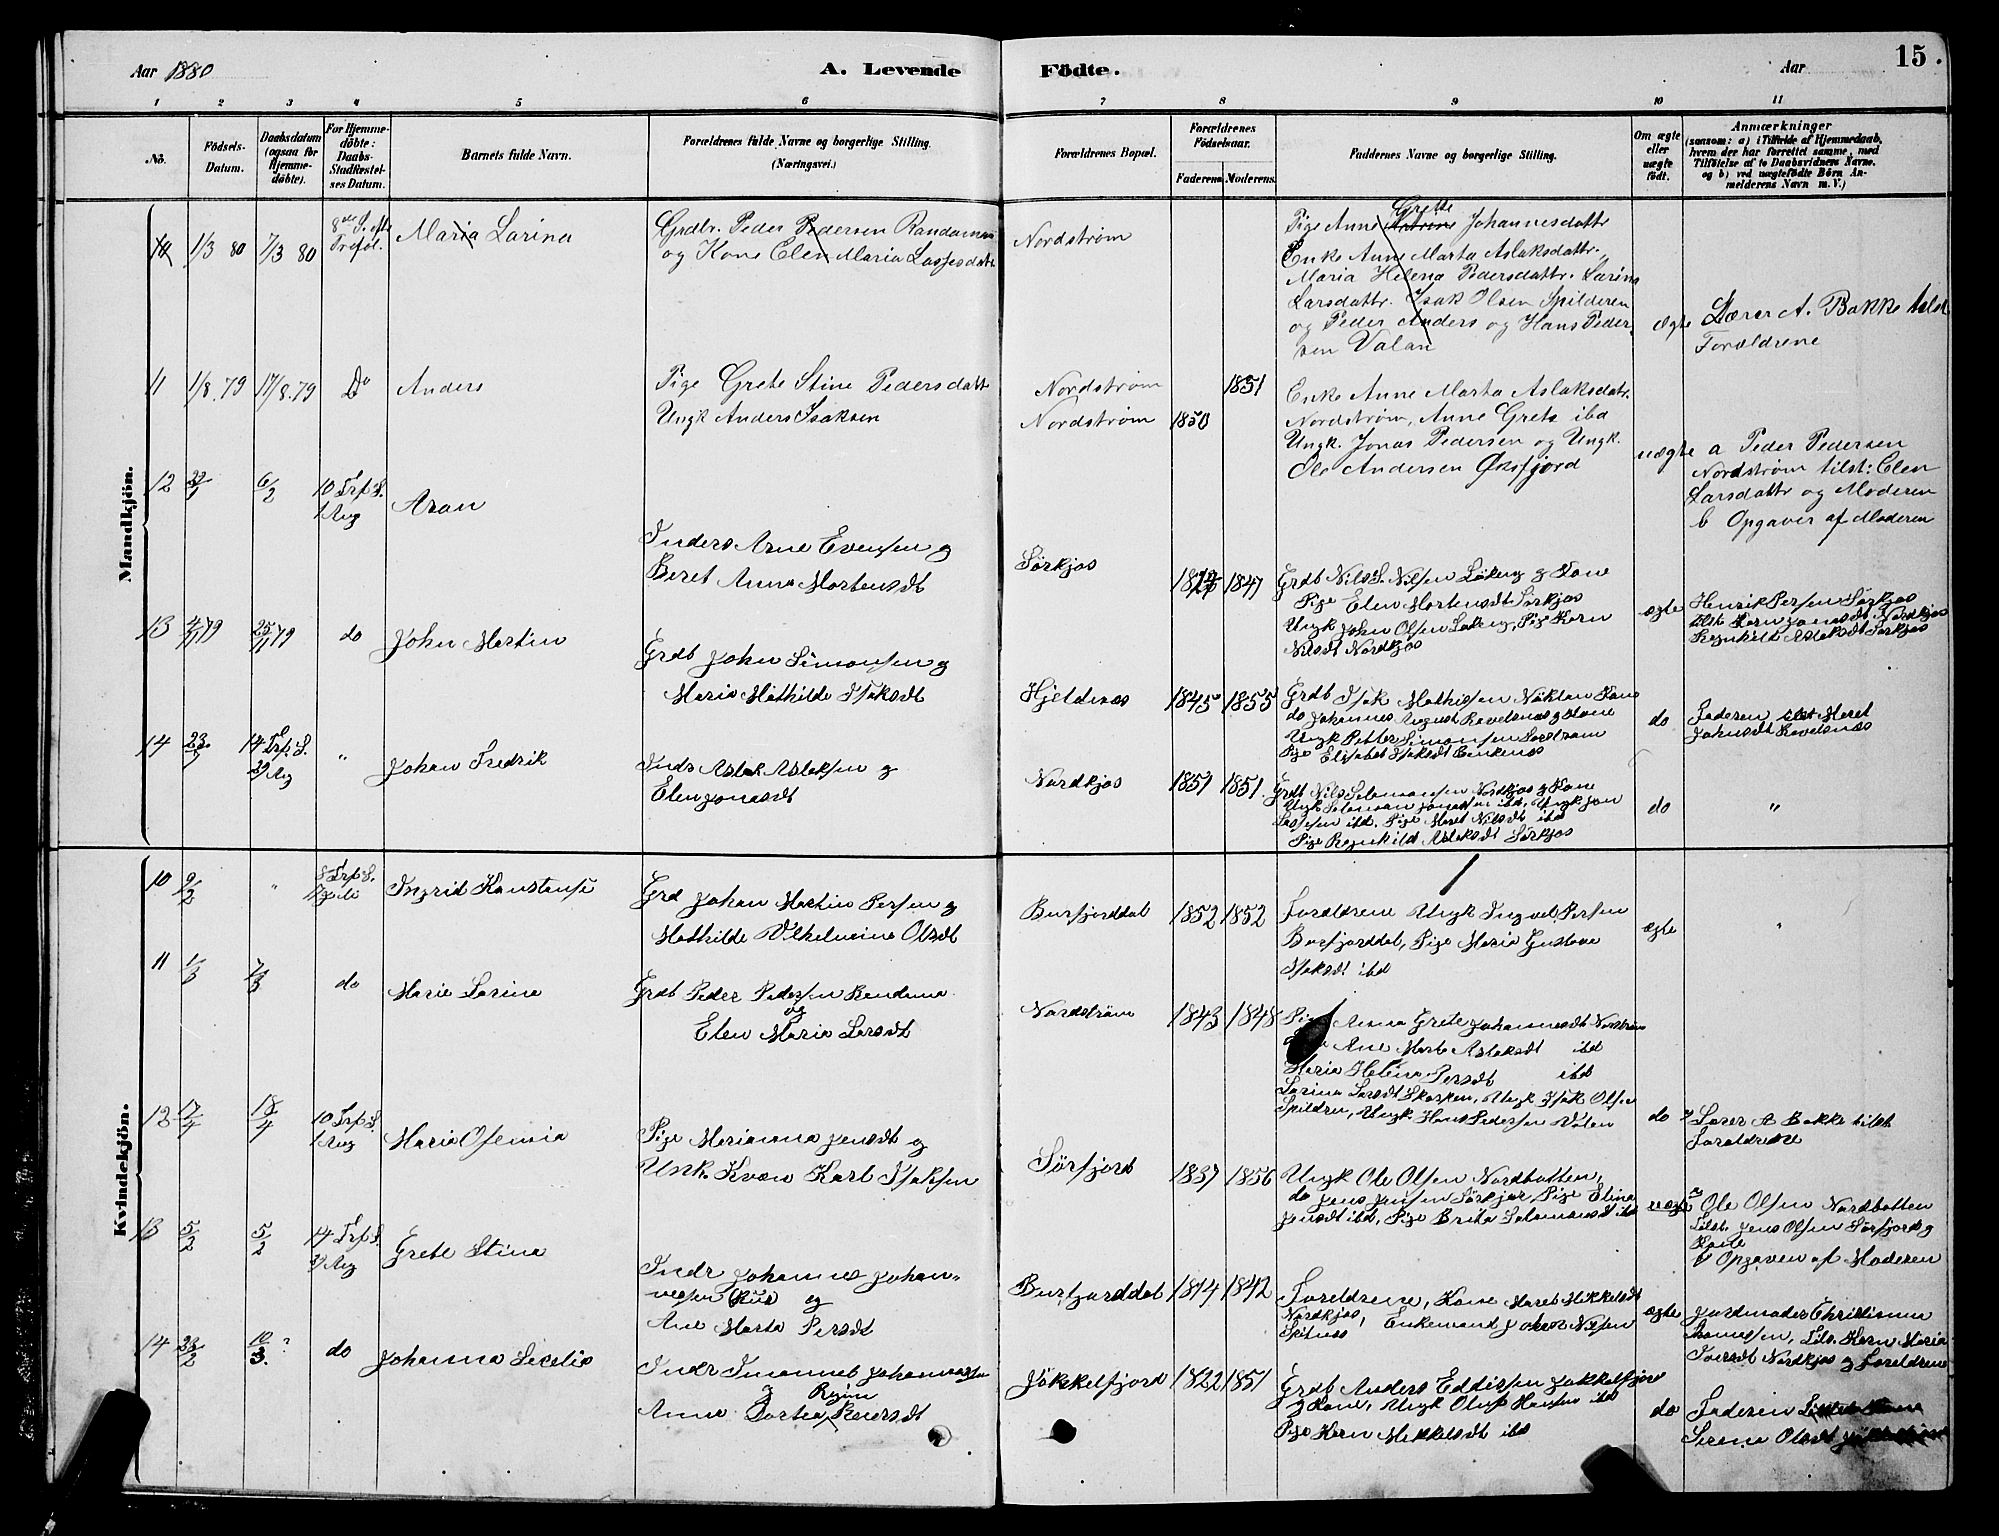 Aar 1880
A. Levende
Födte.
Aar
15.
1 2 3 4 5 6 7 8 9 10 11
No.
Födsels-
Datum.
Daabsdatum
(ogsaa for
Hjemme-
döbte).
For Hjemme-
döbte:
Daabs-
Stadfæstel-
ses Datum.
Barnets fulde Navn.
Forældrenes fulde Navne og borgerlige Stilling.
(Næringsvei.)
Forældrenes Bopæl.
Forældrenes
Födselsaar.
Faderens. Moderens.
Faddernes Navne og borgerlige Stilling.
Om ægte
eller
uægte
födt.
Anmærkninger
(saasom: a) i Tilfælde af Hjemmedaab,
hvem der har forrettet samme, med
Tilföielse af to Daabsvidners Navne.
og b) ved uægtefödte Börn An-
melderens Navn m. V.)
Mandkjön.
1/3 80
7/3 80
Maria Larina
Grdbr. Peder Pedersen Randamen
og Kone Elen Maria
Nordstrøm
Grette
Pige Anne Johannesdattr
Enke Anne Marta Aslaksdattr.
Maria Helena Pedersdattr. Larina
Larsdattr. Isak Olsen Spilderen
og Peder Anders og Hans Peder-
sen Valan
ægte
Lærer A. Bakke tilst
Forældrene
11
1/8.79
17/8.79
Do
Anders
Pige Grete Stine Pedersdattr
Ungk Anders Isaksen
Nordstrøm
Nordstrøm
1850
1851
Enke Anne Marta Aslaksdatr.
Nordstrøm, Anne Grets ibd
Ungk. Jonas Pedersen og Ungk.
Ole Andersen Øksfjord
uægte
a Peder Pedersen
Nordstrøm tilst: Elen
Larsdattr og Moderen
b Opgaver af Moderen
12
6/2
10 Trf S.
1 Aug
Aron
Inders Arne Evensen og
Beret Anna Mortensdt
Sørkjos
1847
Grdb Nils S. Nilsen Løkeng og Kone
Pige Elen Mortensdt Sørkjos
Ungk John Olsen Løkeng, Pige Karn
Nilsdt Nordkjos
ægte
Henrik Persen Sørkjos
tilst Karn Jonasdt Nordkjos
Regnhild Aslaksdt Sørkjos
13
4/11 79
25/11 79
do
John Martin
Grdb John Simonsen og
Maria Mathilde Isaksdt
Hjeldnes
1845
1855
Grdb Isak Mathisen Kone
do Johannes August Ravelsnes og Kone
Ungk Petter Simonsen
Pige Elisabet Isaksdt
do
Faderen Meret
Johnsdt Ravelsnæs
14
14 Trf. S.
Aug
"
Johan Fredrik
Indr Aslak Aslaksen og
Elen Jonasdt
Nordkjos
1851
1851.
Grdb Nils Salamonsen Nordkjos og Kone
Ungk Salamon Jonassen ibd, Ungk Jon
Lassesen ibd. Pige Meret Nilsdt ibd
Pige Regnhild Aslaksdt Sørkjos
do
"
Kvindekjön.
10
9/2
"
8 Trf S.
Ingrid Konstanse
Grd Johan Martin Persen og
Mathilde Vilhelmine Olsdt
Burfjorddal
1852
1852
Foreldrene Ungk Ingvel Persen
Burfjorddal, Pige Maria Gustava
Isaksdt ibd
ægte
"
11
1/3
7/3
do
Marie Larina
Grdb Peder Pedersen Randama
og
Elen Maria Larsdt
Nordstrøm
1843
1848
Anna Grete Johannesdt Nordstrøm
Ane Marte Aslaksdt ibd
Maria Helena Persdt ibd
Larina Larsdt, Ungk Isak Olsen
Spildren, Ungk Hans Pedersen Valen
do
Lærer A Bakke tilst
Foreldrene
12
17/4
18/4
10 Trf. S.
1 Aug
Maria Osemia
Pige Merianna Jensdt og
Unk. Kvæn Karl Isaksen
Sørfjord
1837
1856
Ungk Ole Olsen Nordbotten,
do Jens Jensen Sørkjos, Pige Elina
Jensdt ibd, Pige Brita Salamonsdt ibd
uægte
a Ole Olsen Nordbotten
Tilst. Jens Olsen Sørfjord og
Kone
b Opgaven af Moderen
13
5/2
5/2
14 Trf S.
Aug
Grete Stina
Indr Johannes Johan-
nessen og
Ane Marta Persdt
Burfjorddal
1814
1842
Foreldrene, Kone Maret Mikkelsdt
Nordkjos, Enkemand Nilsen
Spitnes
ægte
Jordmoder Christianna
Tils. Karn Maria
Nordkjos og Foreldrene
14
23/2
10/3. ?
do
Johanna Secelia
Indr Immanuel Johannessen
og Regine
Anna Dortea
Jökkelfjord
1822
1851
Grdb Anders Eddissen Jøkkelfjord
og Kone, Ungk Oluf Hansen ibd
Pige Karn Mikkelsdt ibd
do
Faderen
Serena Olsdt